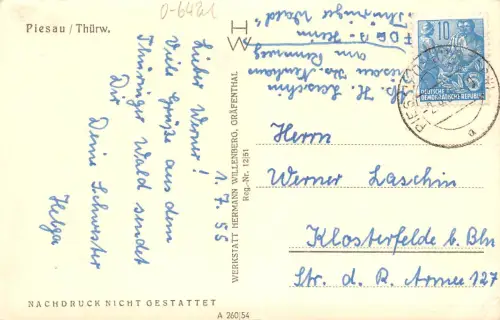 Piesau / Thürw.
0-6421
1.7.55
Lieber Werner!
Viele Grüße aus dem
Thüringer Wald sendet
Dir
Deine Schwester
Helga
NACHDRUCK NICHT GESTATTET
WERKSTATT HERMANN WILLENBERG, GRÄFENTHAL
Reg.-Nr. 12/51
A 260/54
H. Laschin
am Rennweg
FDGB-Heim
"Thüringer Wald"
10
DEUTSCHE
DEMOKRATISCHE REPUBLIK
5
PIES
a
Herrn
Werner Laschin
Klosterfelde b. Bln
Str. d. R. Armee 127